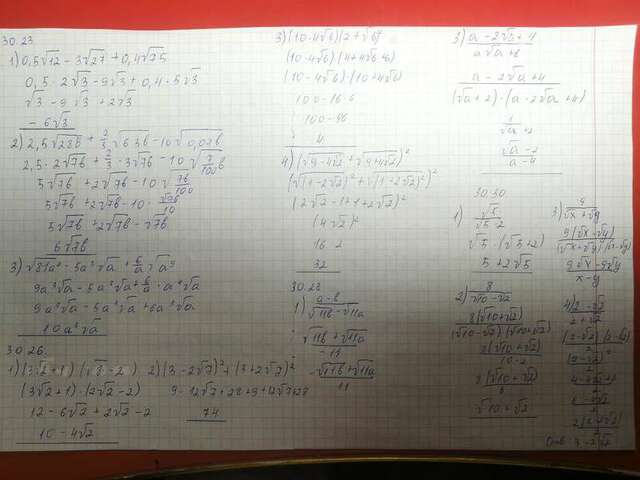 30.23
1) 0,5√12 - 3√27 + 0,4√75
0,5 · 2√3 - 9√3 + 0,4 · 5√3
√3 - 9√3 + 2√3
- 6√3
2) 2,5√28b + 2/3 √63b - 10√0,07b
2,5 · 2√7b + 2/3 · 3√7b - 10√7/100 b
5√7b + 2√7b - 10√7b/100
5√7b + 2√7b - 10 · √7b/10
5√7b + 2√7b - √7b
6√7b
9a³√a - 5a³√a + 6/a · a⁴√a
9a³√a - 5a³√a + 6a³√a
10a³√a
30.26
1) (3√2 + 1) (√8 - 2)
(3√2 + 1) · (2√2 - 2)
12 - 6√2 + 2√2 - 2
10 - 4√2
2) (3 - 2√7)² + (3 + 2√7)²
9 - 12√7 + 28 + 9 + 12√7 + 28
74
3) (10 - 4√6) (2 + √6)²
(10 - 4√6) (4 + 4√6 + 6)
(10 - 4√6) · (10 + 4√6)
100 - 16 · 6
100 - 96
4
4) (√9 - 4√2 + √9 + 4√2)²
(2√2 - 1 + 1 + 2√2)²
(4√2)²
16 · 2
32
1) a - b / √11b - √11a
√11b + √11a / - 11
- √11b + √11a / 11
3) a - 2√a + 4 / a√a + 8
a - 2√a + 4
(√a + 2) · (a - 2√a + 4)
1 / √a + 2
√a - 2 / a - 4
30.30
1) √5 / √5 - 2
√5 · (√5 + 2)
5 + 2√5
2) 8 / √10 - √2
8(√10 + √2)
(√10 - √2) (√10 + √2)
8(√10 + √2) / 10 - 2
8(√10 + √2) / 8
√10 + √2
3) 9 / √x + √y
9(√x - √y)
9√x - 9√y
x - y
4) 2 - √2 / 2 + √2
(2 - √2) (2 - √2)
3 - 2√2